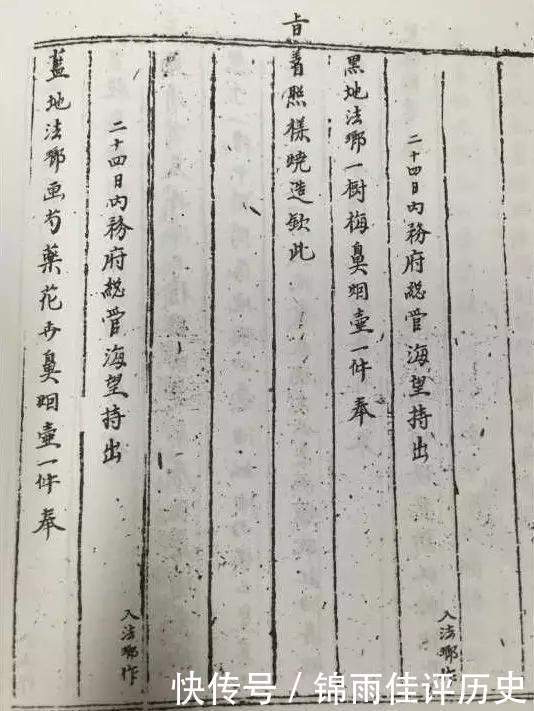 二十四日內務府総管海望持出
入法瑯作
黑地法瑯一樹梅鼻烟壷一件奉
旨着照樣燒造欽此
二十四日內務府総管海望持出
入法瑯作
藍地法瑯画芍藥花卉鼻烟壷一件奉
快传号/锦雨佳评历史